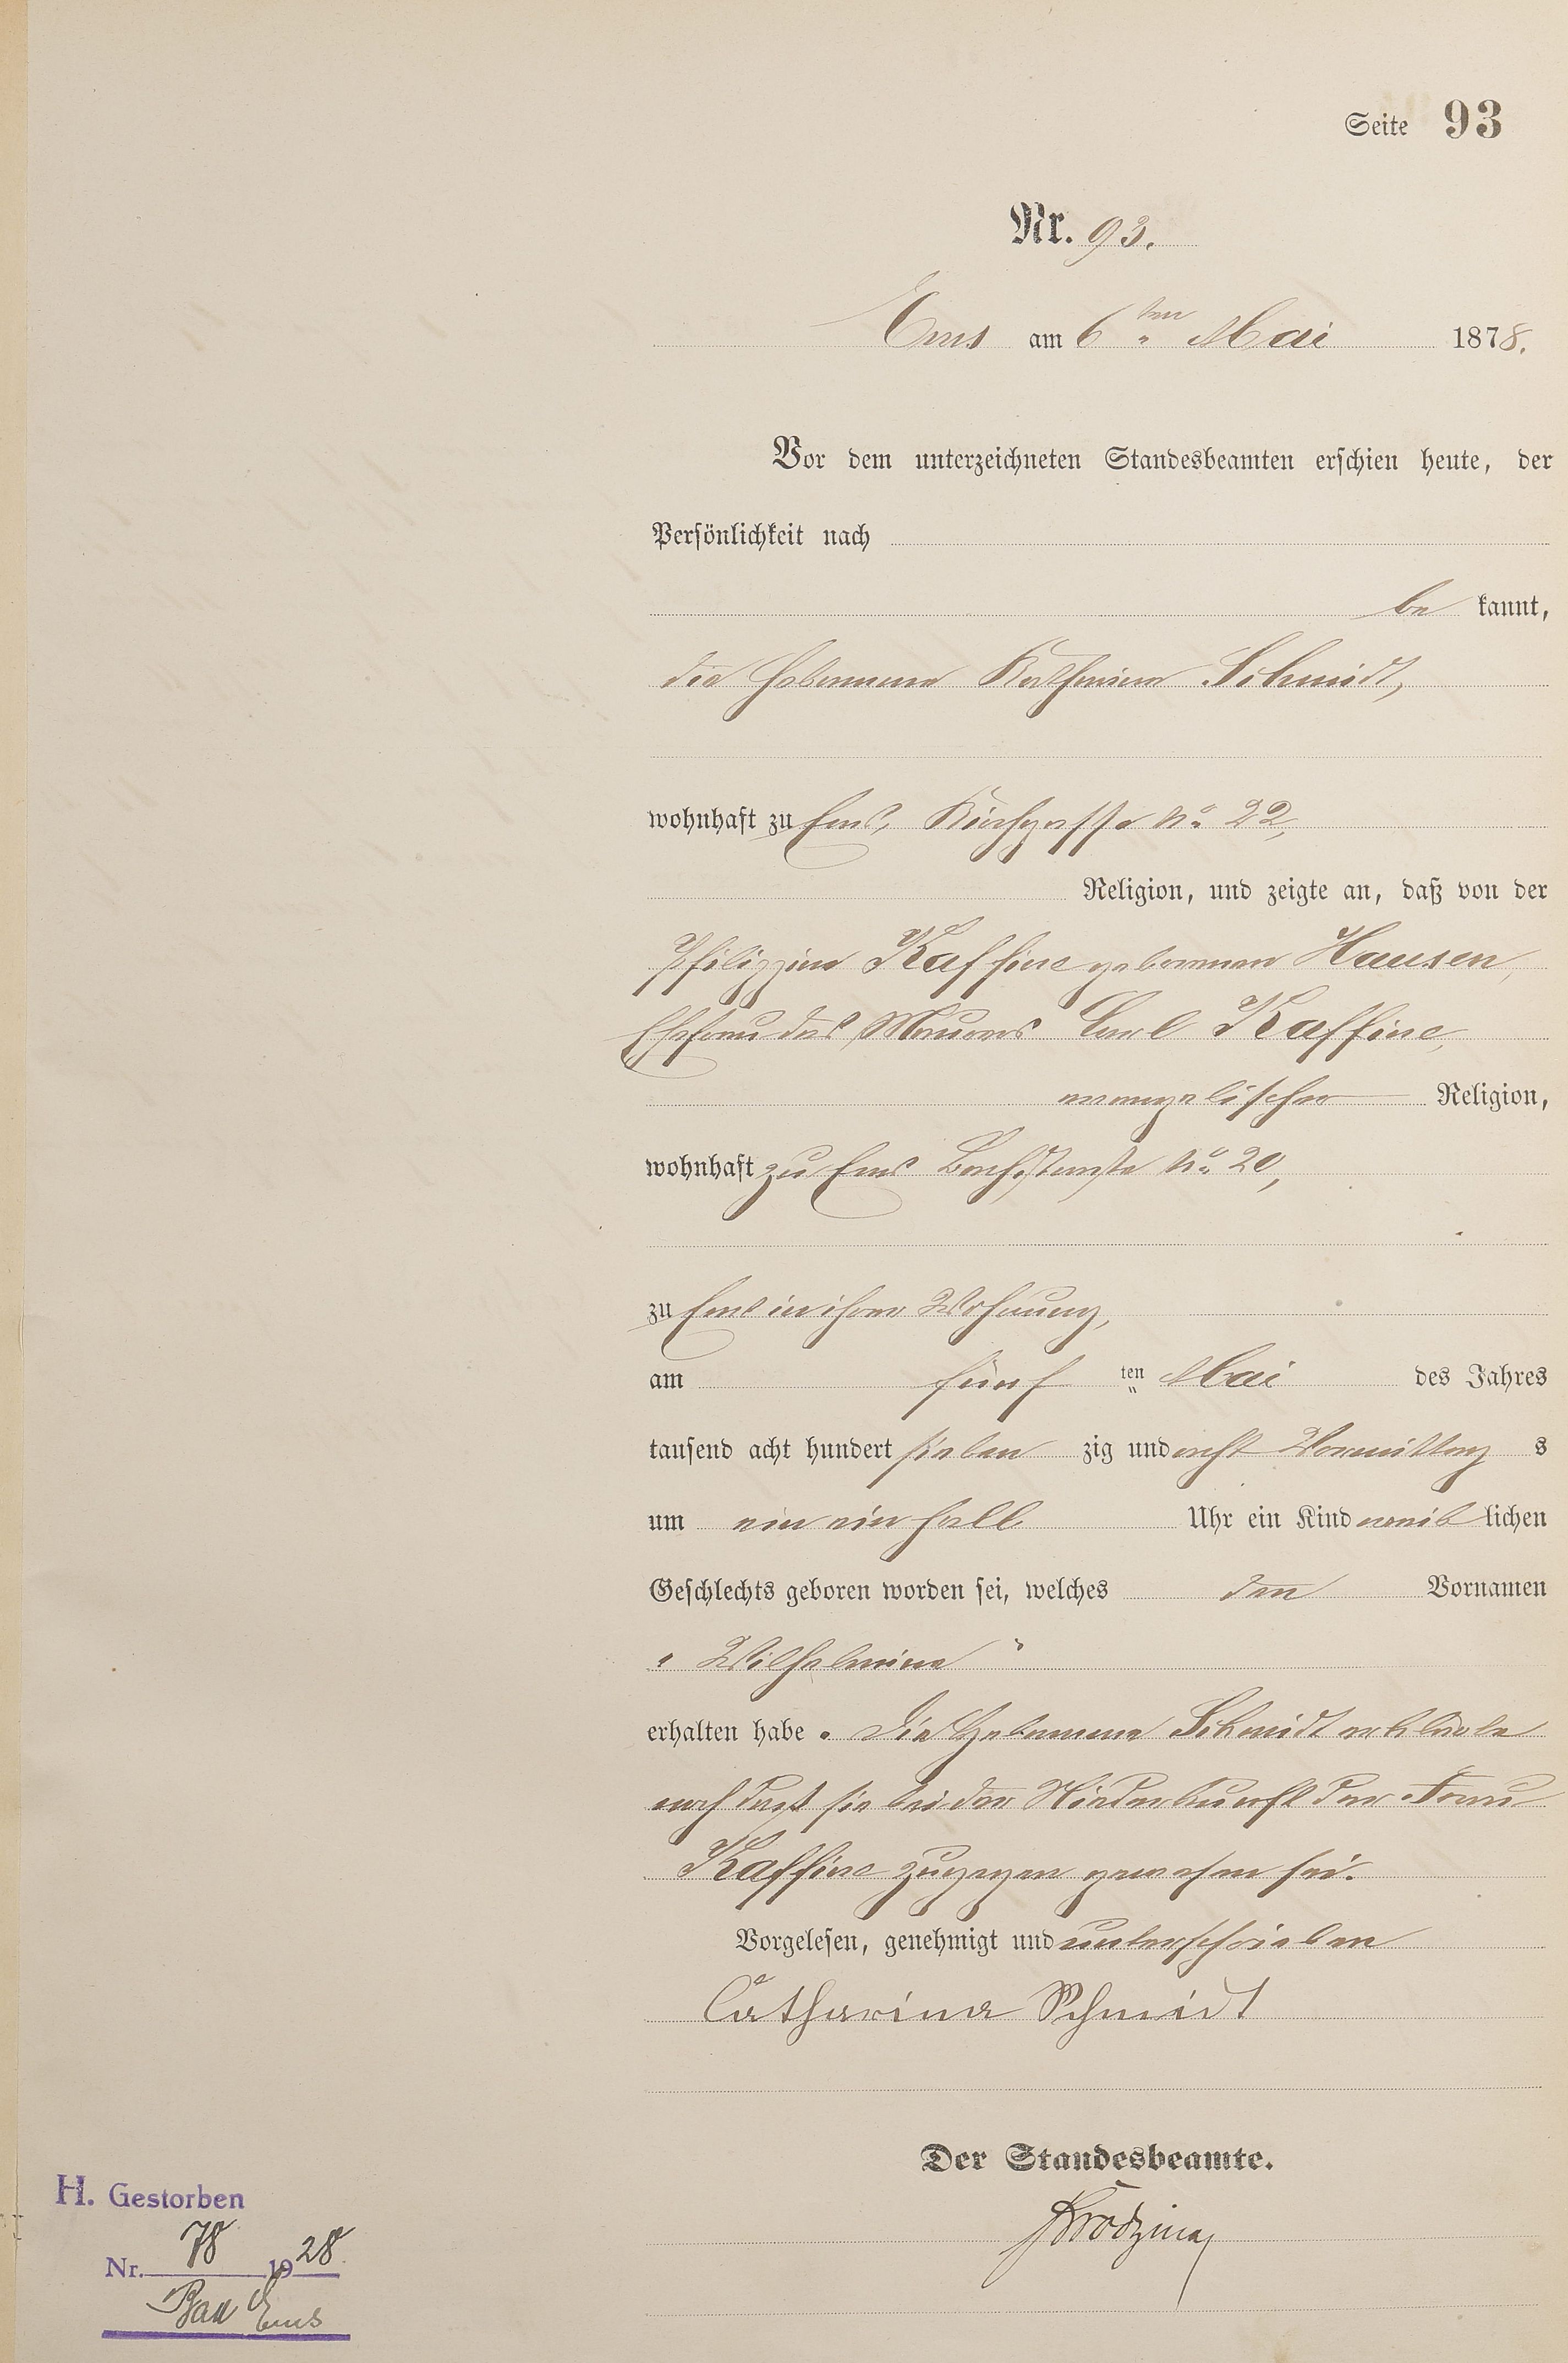 Seite 93
Nr. 93.
Ems am 6ten Mai 1878.
Vor dem unterzeichneten Standesbeamten erschien heute, der
Persönlichkeit nach
be kannt,
die Hebamme Katharina Schmidt,
wohnhaft zu Ems, Kirchgasse No 22,
Religion, und zeigte an, daß von der
Philippine Kaffine geborenen Hausen,
Ehefrau des Maurers Carl Kaffine,
evangelischer Religion,
wohnhaft zu Ems Bachstraße No 20,
zu Ems in ihrer Wohnung,
am fünf ten Mai des Jahres
tausend acht hundert sieben zig und acht Vormittag s
um ein ein halb Uhr ein Kind weib lichen
Geschlechts geboren worden sei, welches den Vornamen
„ Wilhelmine “
erhalten habe. Die Hebamme Schmidt erklärte
noch daß sie bei der Niederkunft der Frau
Kaffine zugegen gewesen sei.
Vorgelesen, genehmigt und unterschrieben
Catharina Schmidt
Der Standesbeamte.
H. Gestorben
Nr. 78 1928
Bad Ems